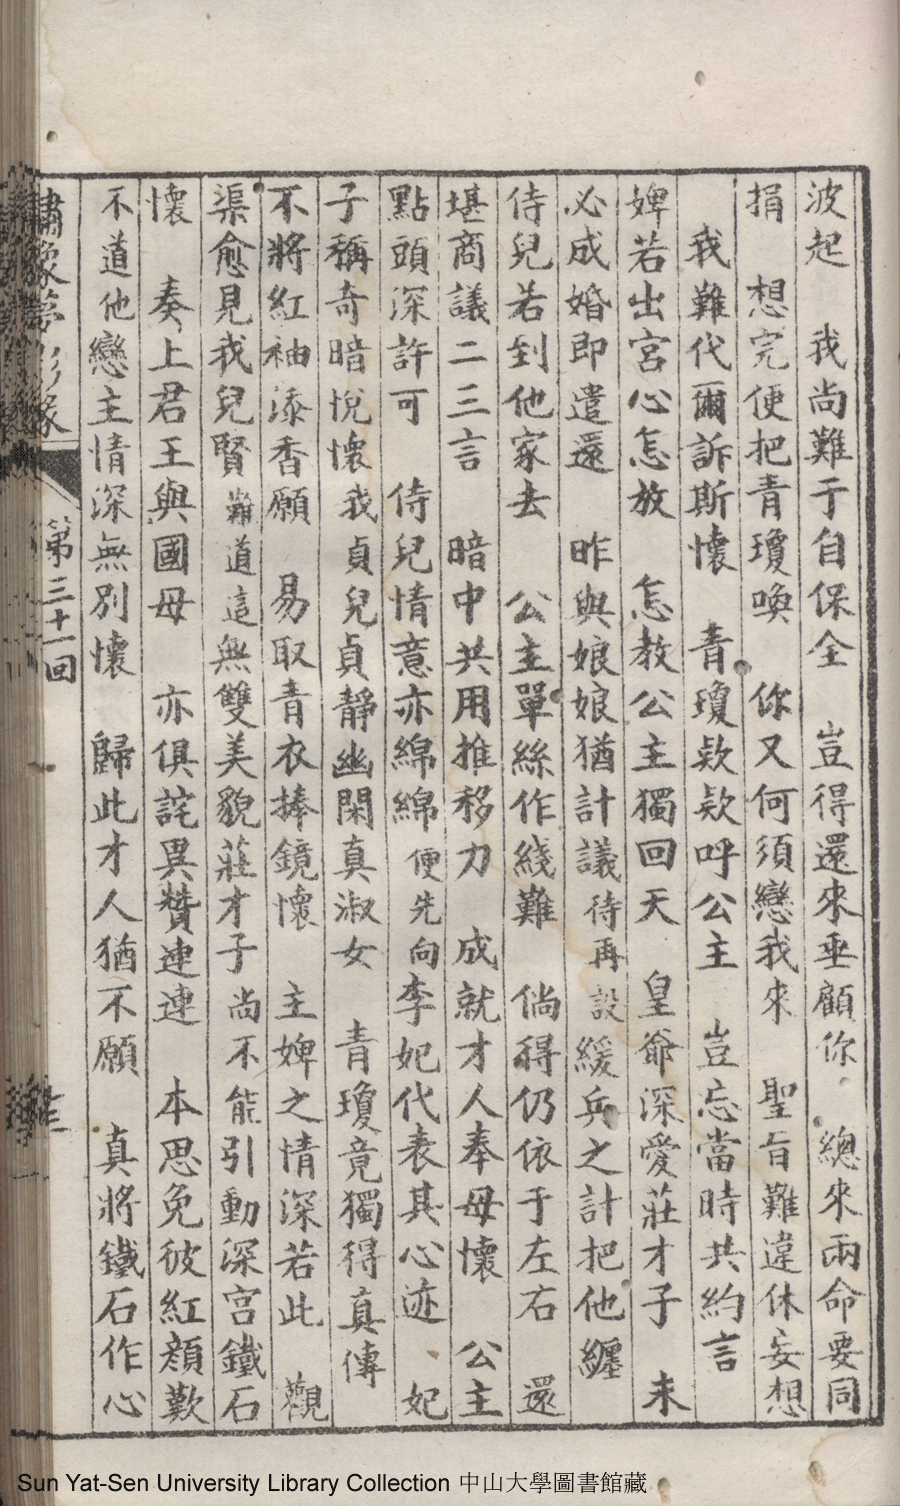 波起　我尚難于自保全　豈得還來垂顧你　總來兩命要同
捐　想完便把青瓊喚　你又何須戀我來　聖旨難違休妄想
我難代爾訴斯懷　青瓊欵欵呼公主　豈忘當時共約言
婢若出宮心怎放　怎教公主獨回天　皇爺深愛莊才子　未
必成婚即遣還　昨與娘娘猶計議待再設緩兵之計把他纏
侍兒若到他家去　公主單絲作綫難　倘得仍依于左右　還
堪商議二三言　暗中共用推移力　成就才人奉母懷　公主
點頭深許可　侍兒情意亦綿綿便先向李妃代表其心迹　妃
子稱奇暗悅懷我貞兒貞靜幽閑真淑女　青瓊竟獨得真傳
不將紅袖添香願　易取青衣捧鏡懷　主婢之情深若此　觀
渠愈見我兒賢難道這無雙美貌莊才子尚不能引動深宮鐵石
懷　奏上君王與國母　亦俱詫異贊連連　本思免彼紅顏歎
不道他戀主情深無別懷　歸此才人猶不願　真將鐵石作心
第三十一回
Sun Yat-Sen University Library Collection 中山大學圖書館藏